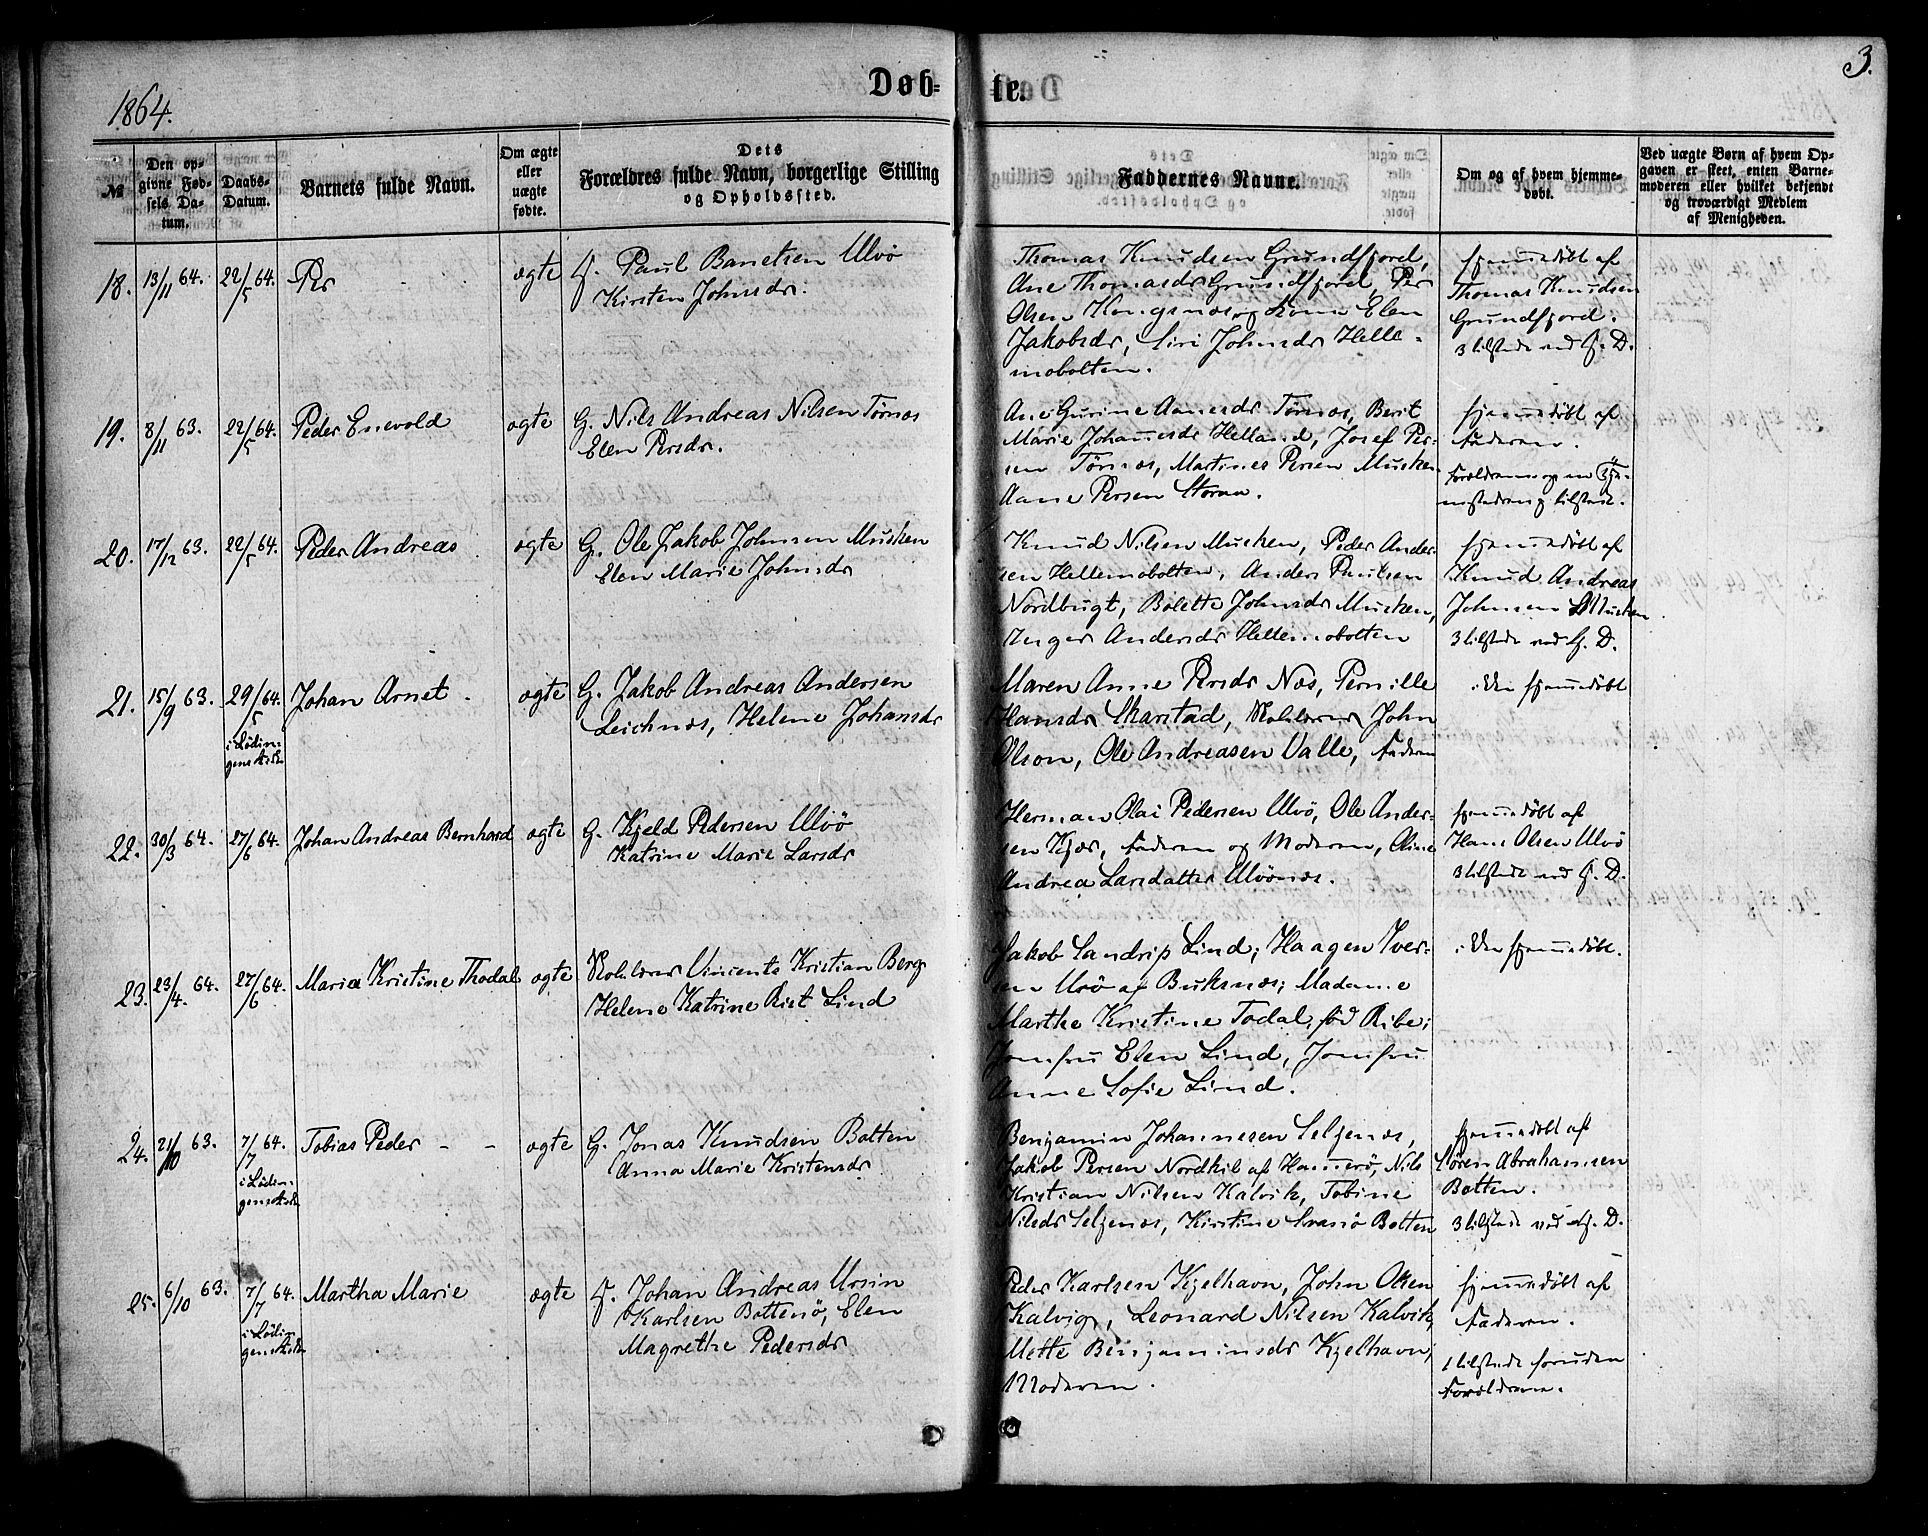 1864.
Døb=
te.
3.
№
Den op-
givne Fød-
sels Da-
tum.
Daabs-
Datum.
Barnets fulde Navn.
Om ægte
eller
uægte
fødte.
Dets
Forældres fulde Navn, borgerlige Stilling
og Opholdssted.
Faddernes Navne.
Om og af hvem hjemme-
døbt.
Ved uægte Børn af hvem Op-
gaven er skeet, enten Barne-
moderen eller hvilket bekjendt
og troværdigt Medlem
af Menigheden.
18. 13/11 64. 22/5 64. Per ægte F. Paul Banetsen Ulvö
Kirsten Johnsdr.
Thomas Knudsen Grundfjord,
Ane Thomasdr Grundfjord, Per
Olsen Kongsnes og Kone Elen
Jakobsdr, Siri Johnsdr Helle-
mobotten.
hjemmedøbt af
Thomas Knudsen
Grundfjord.
3 tilstede ved H. D.
19. 8/11 63. 22/5 64. Peder Enevold ægte G. Nils Andreas Nilsen Tørnes
Elen Persdr.
Ane Gurine Aanesdr Tørnes, Berit
Marie Johannesdr Helland, Josef Per-
sen Tørnes, Martines Persen Musken
Aane Persen Storaa.
hjemmedøbt af
Faderen.
Forældrene og en Tje-
tilstede.
20. 17/12 63. 22/5 64. Peder Andreas ægte G. Ole Jakob Johnsen Musken
Elen Marie Johnsdr
Knud Nilsen Musken, Peder Ander-
sen Hellemobotten, Anders Paulsen
Nordbugt, Bolette Johnsdr Musken,
Inger Andersdr Hellemobotten
hjemmedøbt af
Knud Andreas
Johnsen Musken
3 tilstede ved H. D.
21. 15/9 63. 29/5 64. Johan Arnet ægte G. Jakob Andreas Andersen
i Lödin-
gens Kirke
Leichnes, Helene Johansdr
Maren Anne Persdr Nes, Pernille
Hansdr Skarstad, Skolelærer John
Olson, Ole Andreasen Valle, Faderen
ikke hjemmedøbt
22. 30/3 64. 27/6 64. Johan Andreas Bernhard ægte G. Kjeld Pedersen Ulvö
Katrine Marie Larsdr
Herman Olai Pedersen Ulvö, Ole Ander-
sen Kjær, Faderen og Moderen, Oline
Andrea Larsdatter Ulvönes.
hjemmedøbt af
Hans Olsen Ulvö
3 tilstede ved H. D.
23. 23/4. 64. 27/6 64. Maria Kristine Thodal ægte Skolelærer Vincents Kristian Berg
Helene Katrine Rist Lind
Jakob Sandrip Lind; Haagen Iver-
sen Ulvö af Buksnes; Madame
Marthe Kristine Todal, fød Ribe;
Jomfru Elen Lind, Jomfru
Anne Sofie Lind.
ikke hjemmedøbt.
24. 21/10 63. 7/7 64. Tobias Peder - - ægte G. Jonas Knudsen Botten
i Lödin-
gens Kirke
Anna Marie Kristensdr
Benjamin Johannesen Seljenes,
Jakob Persen Nordkil af Hamerö, Nils
Kristian Nilsen Kalvik, Tobine
Nilsdr Seljenes, Kirstine Svensö Botten
hjemmedøbt af
Sören Abrahamsen
Botten.
3 tilstede ved H. D.
25. 6/10 63. 7/7 64. Martha Marie ægte F. Johan Andreas Ursin
i Lödin-
gens Kirke
Karlsen Bottenö, Elen
Magrethe Pedersdr
Peder Karlsen Kjelhavn, John Olsen
Kalvig, Leonard Nilsen Kalvik,
Mette Benjaminsdr Kjelhavn,
Moderen.
hjemmedøbt af
Faderen.
1 tilstede foruden
Forældrene.